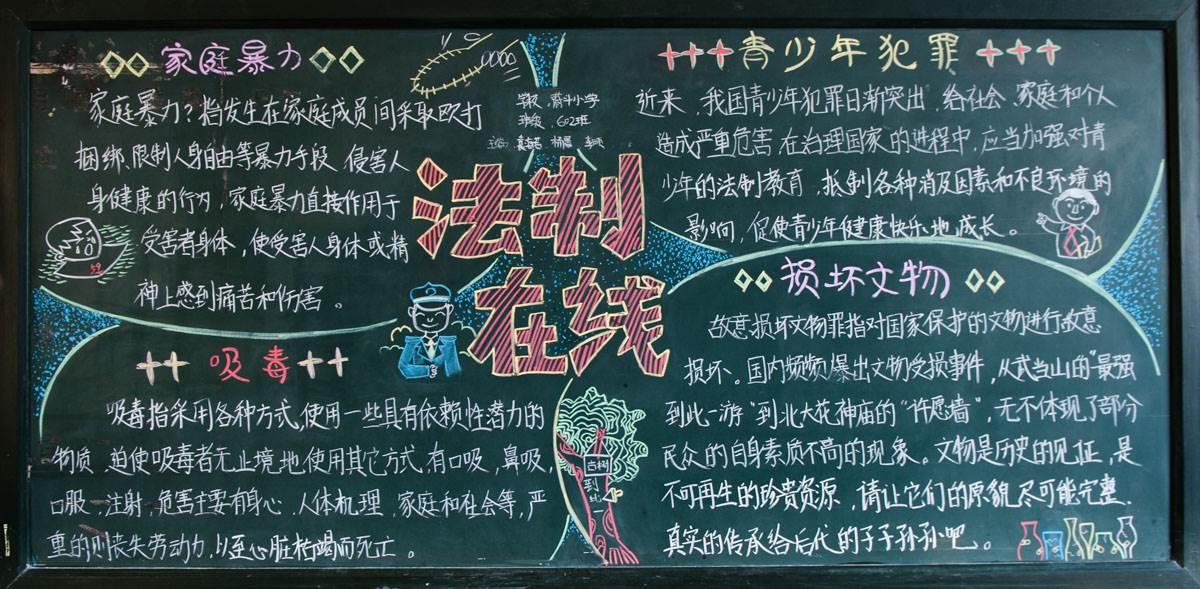 家庭暴力
家庭暴力?指发生在家庭成员间采取殴打
捆绑、限制人身自由等暴力手段 侵害人
身健康的行为,家庭暴力直接作用于
受害者身体,使受害人身体或精
神上感到痛苦和伤害。
小学
班级:602班
法制
在线
青少年犯罪
近来,我国青少年犯罪日渐突出,给社会、家庭和个人
造成严重危害,在治理国家的进程中,应当加强对青
少年的法制教育,抵制各种消及因素和不良环境的
影响,促使青少年健康快乐地成长。
吸毒
吸毒指采用各种方式,使用一些具有依赖性潜力的
物质,迫使吸毒者无止境地使用其它方式,有口吸,鼻吸,
口服、注射,危害主要有身心、人体机理、家庭和社会等,严
重的则丧失劳动力,以至心脏枯竭而死亡。
损坏文物
故意损坏文物罪指对国家保护的文物进行故意
损坏。国内频频爆出文物受损事件,从武当山的"最强
到此一游"到北大花神庙的"许愿墙",无不体现了部分
民众的自身素质不高的现象。文物是历史的见证,是
不可再生的珍贵资源,请让它们的原貌尽可能完整、
真实的传承给后代的子子孙孙吧。
古树
到
此
一